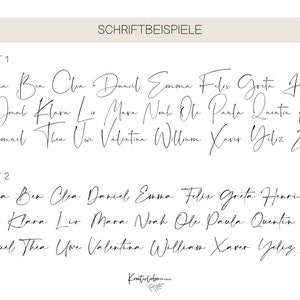 SCHRIFTBEISPIELE
1
Ben Clea Daniel Emma Felix Greta
Klara Liv Mara Noah Ole Paula Quentin
Thea Uwe Valentina William Xaver Yeliz
2
Ben Clea Daniel Emma Felix Greta Henri
Klara Liv Mara Noah Ole Paula Quentin
Thea Uwe Valentina William Xaver Yeliz